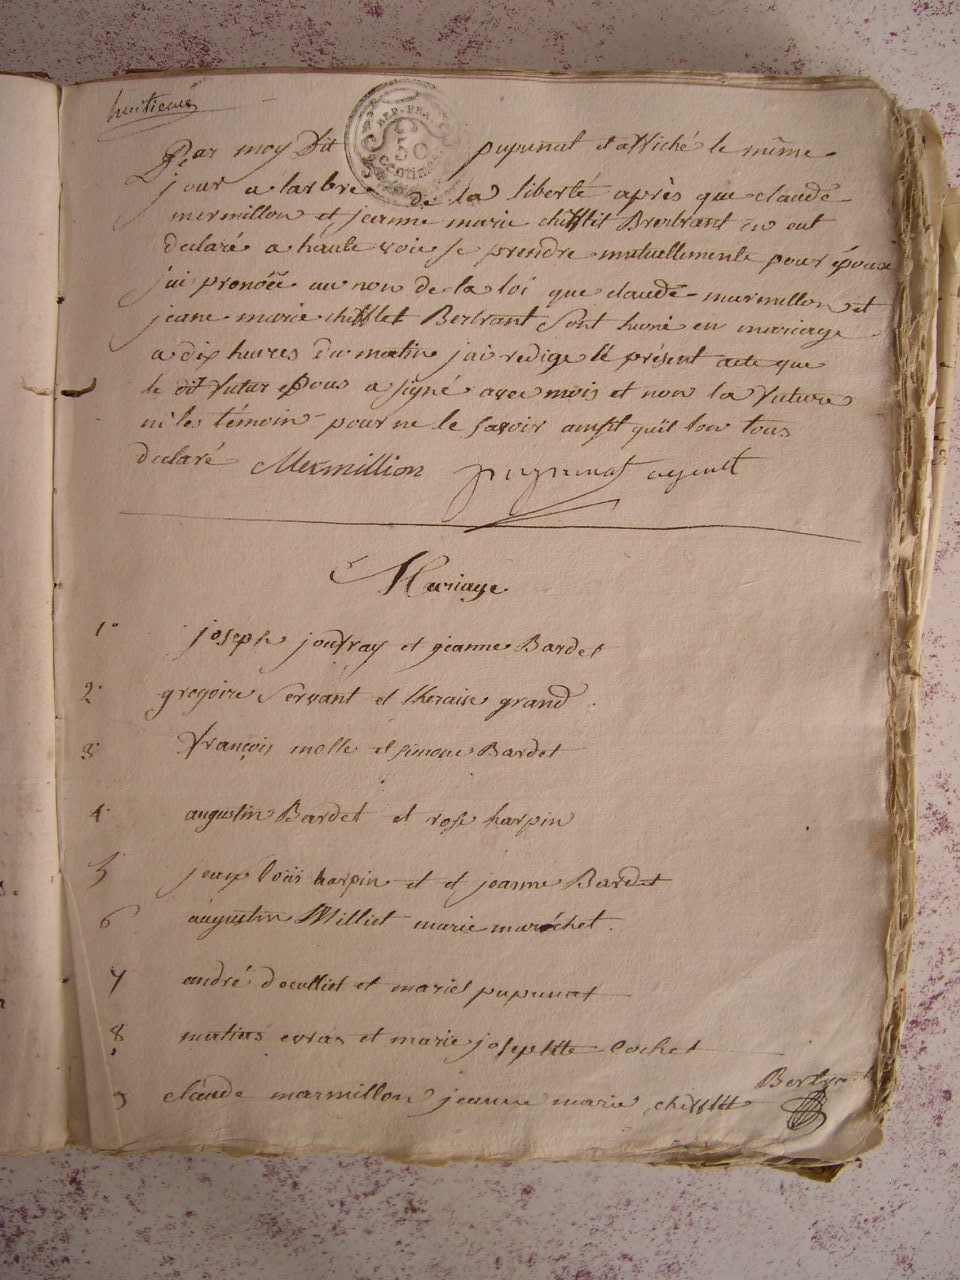 huitieme
REP. FRA.
50
Centimes
Par moy Dit pupunat et affiché le même
jour a larbre de la liberté après que claude
mermillon et jeanne marie chifflet Bertrant en eut
declaré a haute voie se prendre mutuellemente pour époux
j'ai pronocé au non de la loi que claude marmillon et
jeane marie chifflet Bertrant sont hunie en mariage
a dix heures du matin j'ai redige lé présent acte que
le dit futur epous a signé avec mois et non la future
ni les témoin pour ne le savoir ainsit quil lon tous
declaré Mermillion pupunat agent
Mariage
1° joseph joufray et géanne Bardet
2° gregoire Servant et theraise grand
3° françois molle et simone Bardet
4° augustin Bardet et rose harpin
5 jean loüis harpin et et jeanne Bardet
6 augustin Milliet marie maréchet
7 andré decultiet et mariet pupunat
8 matias evrax et marie josephtte lochet
9 claude marmillon jeanne marie chifflet Bertrant